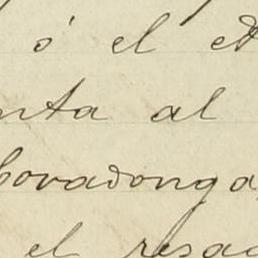 ó el
nta al
Covadonga,
el resa